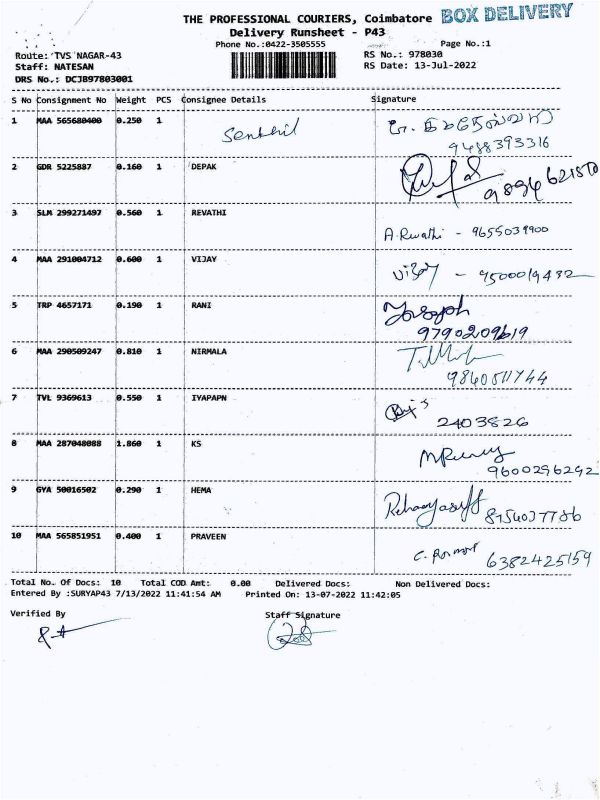 THE PROFESSIONAL COURIERS, Coimbatore BOX DELIVERY
Delivery Runsheet - P43
Phone No.:0422-3505555 Page No.:1
Route: TVS NAGAR-43 RS No.: 978030
Staff: NATESAN RS Date: 13-Jul-2022
DRS No.: DCJB97803001
S No Consignment No Weight PCS Consignee Details Signature
1 MAA 565680400 0.250 1 Senthil
9488393316
2 GDR 5225887 0.160 1 DEPAK
3 SLM 299271497 0.560 1 REVATHI
A. Revathi - 9655039900
4 MAA 291004712 0.600 1 VIJAY
Vijay - 9500019432
5 TRP 4657171 0.190 1 RANI
9790209619
6 MAA 290509247 0.810 1 NIRMALA
9840511744
7 TVL 9369613 0.550 1 IYAPAPN
2403826
8 MAA 287048088 1.860 1 KS
9600296292
9 GYA 50016502 0.290 1 HEMA
10 MAA 565851951 0.400 1 PRAVEEN
6382425159
Total No. Of Docs: 10 Total COD Amt: 0.00 Delivered Docs: Non Delivered Docs:
Entered By :SURYAP43 7/13/2022 11:41:54 AM Printed On: 13-07-2022 11:42:05
Verified By Staff Signature